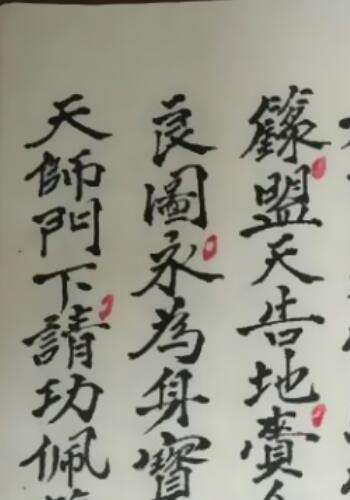 籙盟天告地賫
良圖永為身寶
天師門下請功佩